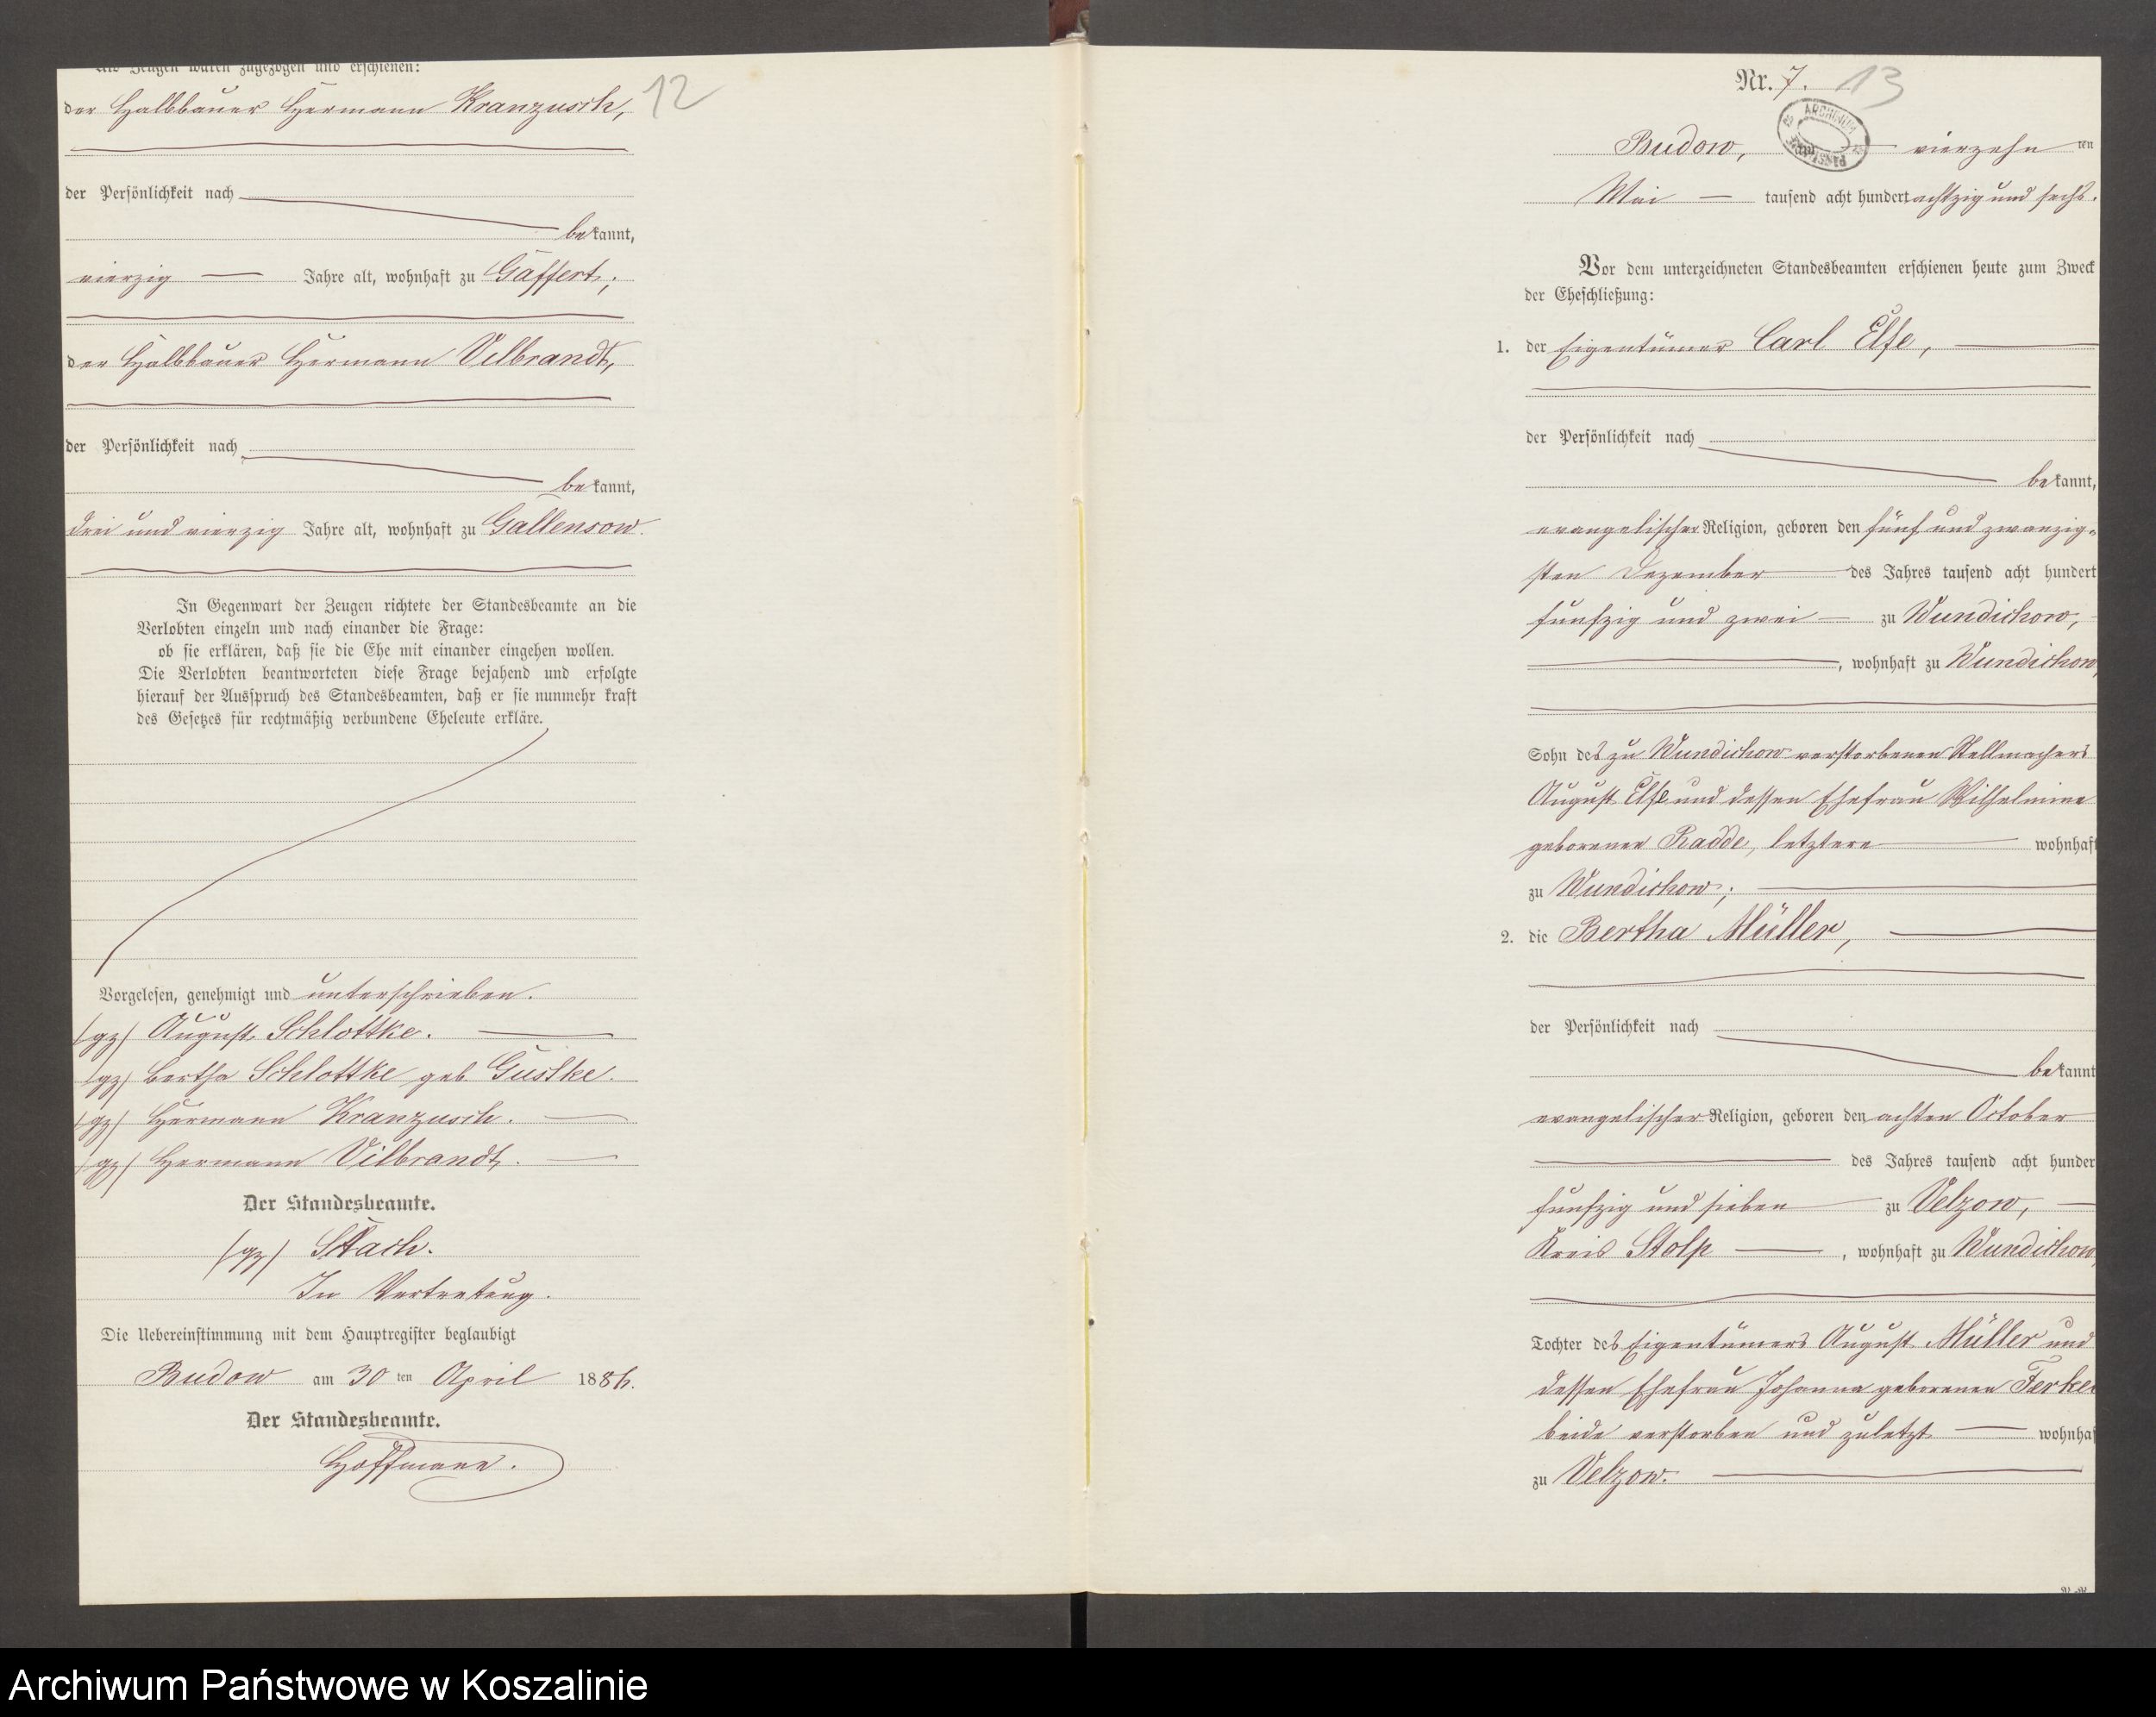 Als Zeugen waren zugezogen und erschienen:
der Halbbauer Hermann Kranzusch,
12
der Persönlichkeit nach
bekannt,
vierzig Jahre alt, wohnhaft zu Gaffert;
der Halbbauer Hermann Vilbrandt,
der Persönlichkeit nach
bekannt,
drei und vierzig Jahre alt, wohnhaft zu Gallensow.
In Gegenwart der Zeugen richtete der Standesbeamte an die
Verlobten einzeln und nach einander die Frage:
ob sie erklären, daß sie die Ehe mit einander eingehen wollen.
Die Verlobten beantworteten diese Frage bejahend und erfolgte
hierauf der Ausspruch des Standesbeamten, daß er sie nunmehr kraft
des Gesetzes für rechtmäßig verbundene Eheleute erkläre.
Vorgelesen, genehmigt und unterschrieben.
(gz) August Schlottke.
(gz) Bertha Schlottke geb. Gustke.
(gz) Hermann Kranzusch.
(gz) Hermann Vilbrandt.
Der Standesbeamte.
(gz) Stach.
In Vertretung.
Die Uebereinstimmung mit dem Hauptregister beglaubigt
Budow am 30 ten April 1886.
Der Standesbeamte.
Hoffmann.
Nr. 7. 13
ARCHIWUM
Budow, am vierzehn ten
Mai tausend acht hundert achtzig und sechs.
Vor dem unterzeichneten Standesbeamten erschienen heute zum Zweck
der Eheschließung:
1. der Eigentümer Carl Else,
der Persönlichkeit nach
bekannt,
evangelischer Religion, geboren den fünf und zwanzig-
sten Dezember des Jahres tausend acht hundert
funfzig und zwei zu Wundichow,
, wohnhaft zu Wundichow,
Sohn des zu Wundichow verstorbenen Stellmachers
August Else und dessen Ehefrau Wilhelmine
geborenen Radde, letztere wohnhaft
zu Wundichow;
2. die Bertha Müller,
der Persönlichkeit nach
bekannt
evangelischer Religion, geboren den achten October
des Jahres tausend acht hunder
funfzig und sieben zu Velzow,
Kreis Stolp , wohnhaft zu Wundichow,
Tochter des Eigentümers August Müller und
dessen Ehefrau Johanna geborenen Ferke
beide verstorben und zuletzt wohnhaf
zu Velzow.
Archiwum Państwowe w Koszalinie